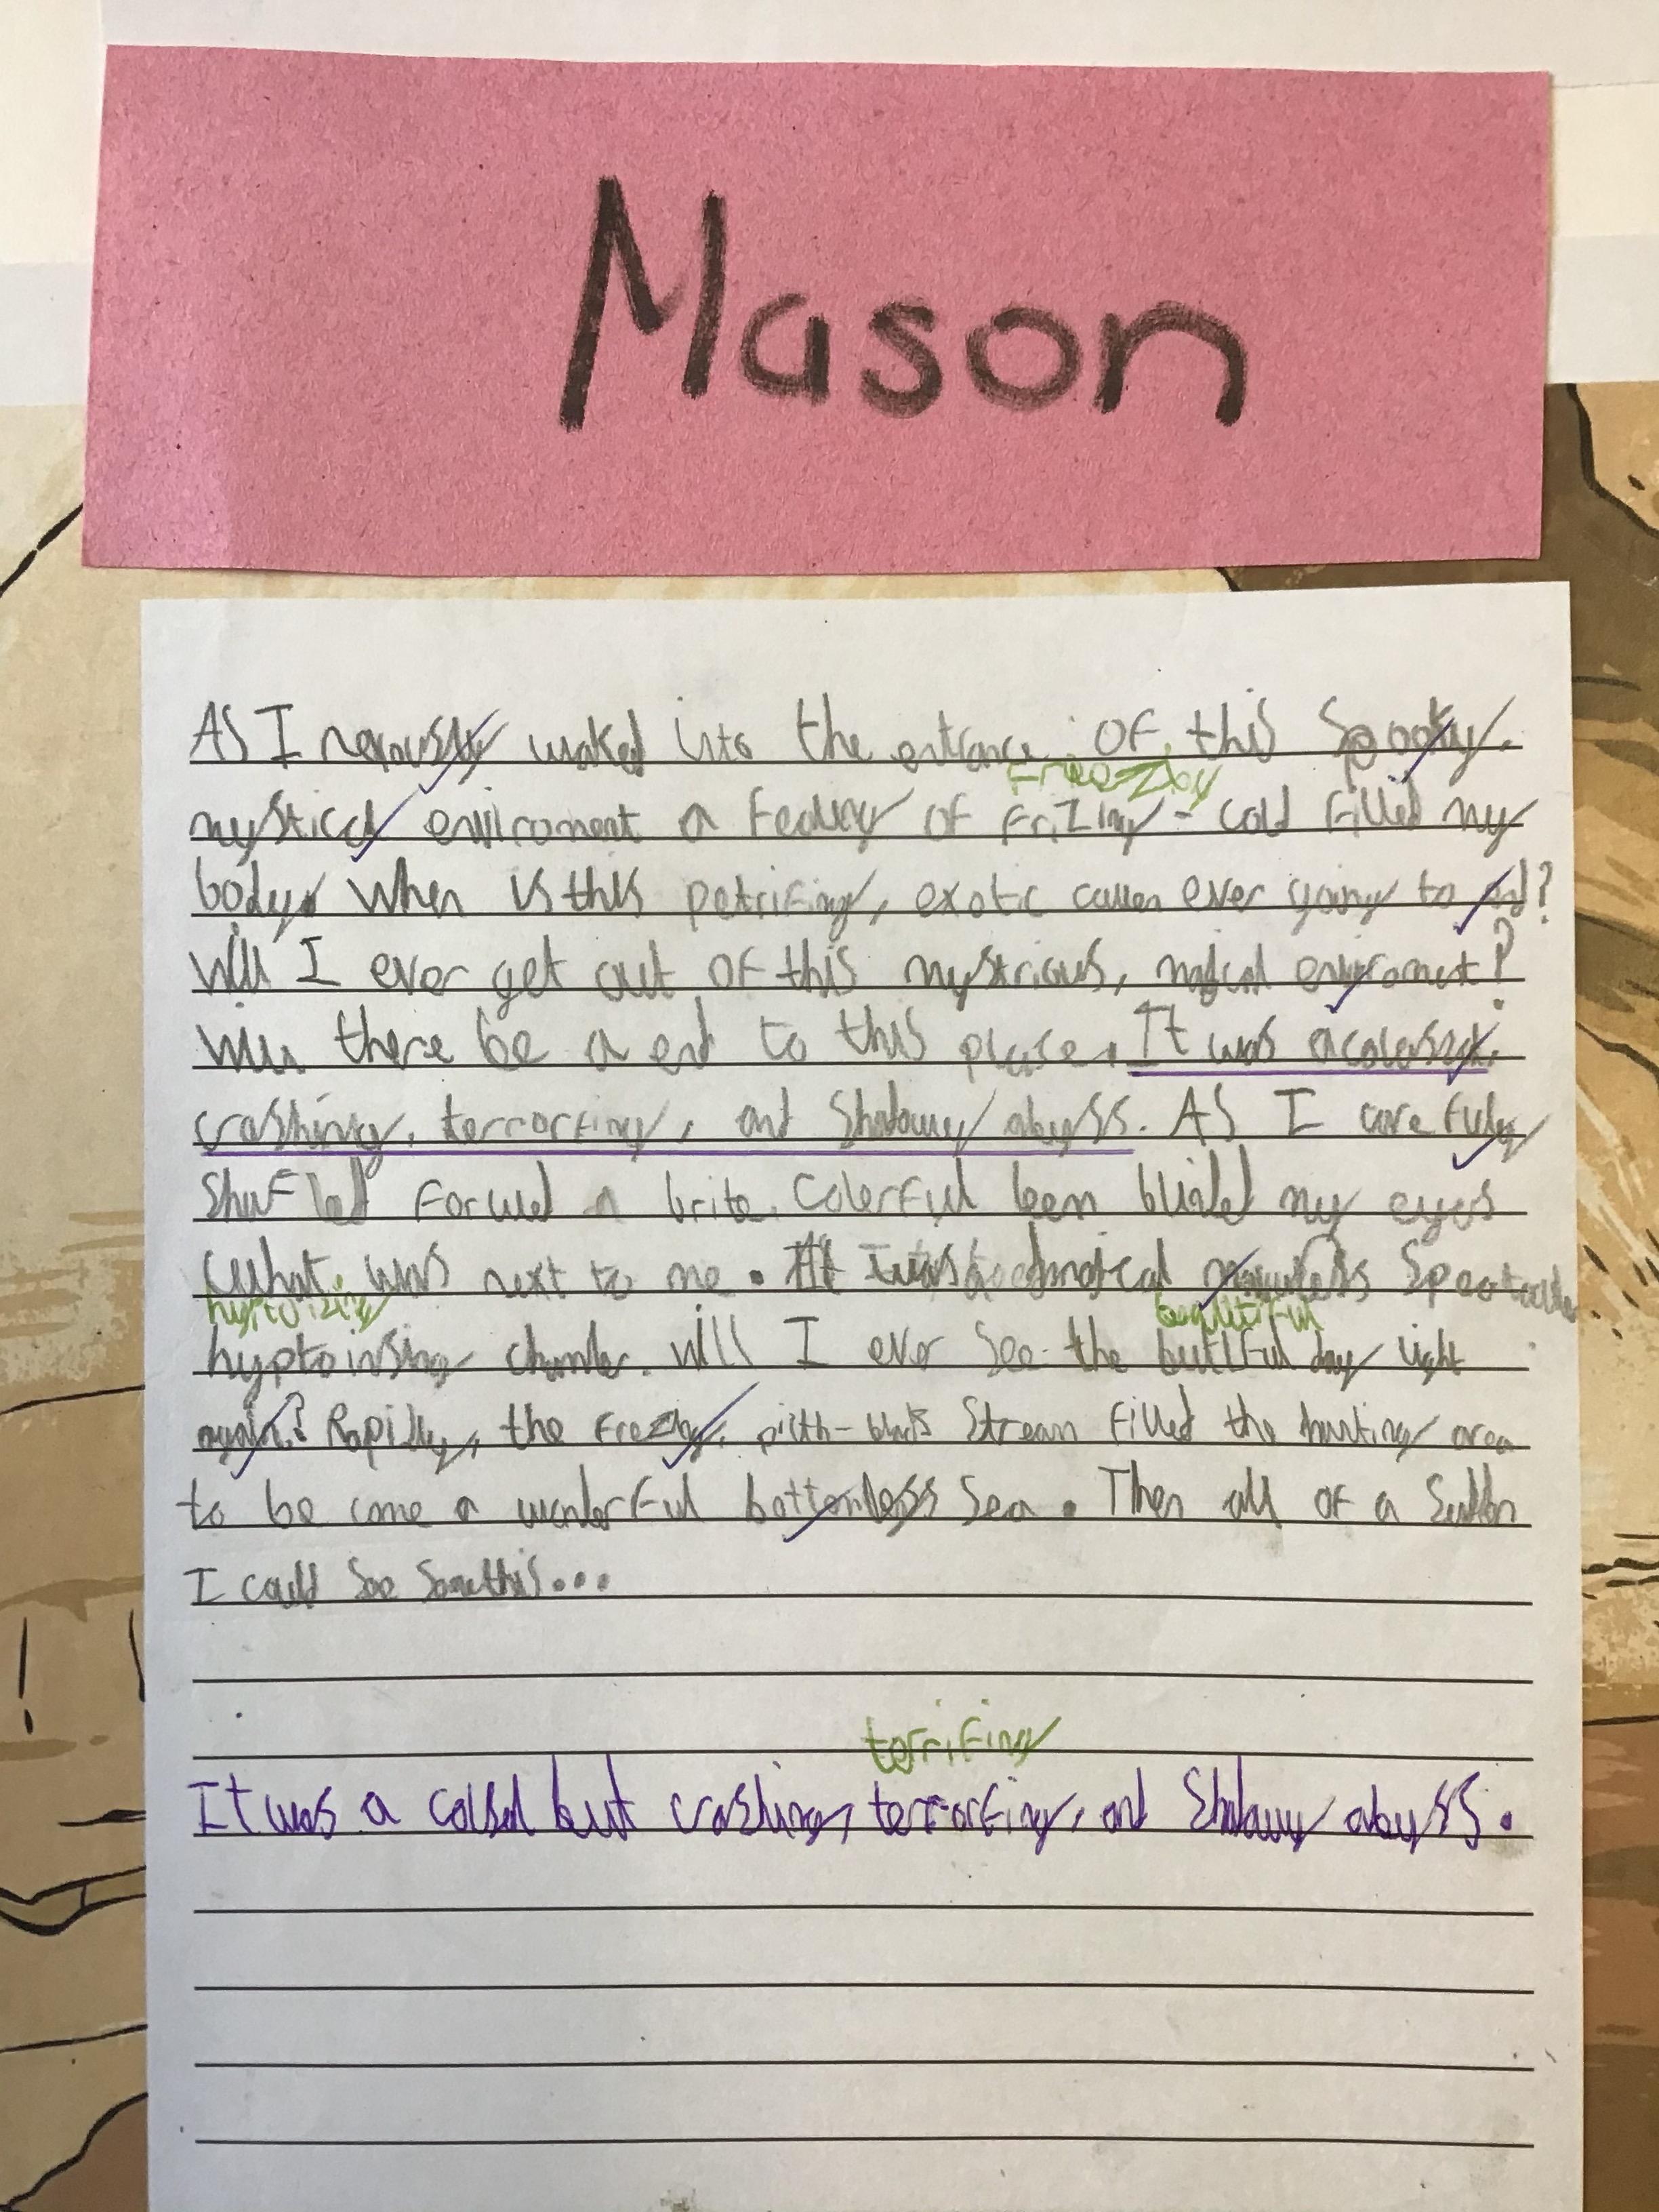 Mason
As I nervously walked into the entrance of this Spooky,
freezing
mystical enviroment a feeling of frizing - cold filled my
body. When is this petrifing, exotic cavern ever going to end?
Will I ever get out of this mystrious, magical enviroment?
Will there be a end to this place. It was a colossal,
crashing, terrorfing, and Shadowy abyss. As I carefuly
Shuffled forwed a brite, Colerful beem blinded my eyes
what was next to me. It was magical Spectacular
hyptoizing beautiful
hyptoinsing chamber. Will I ever See the butiful day light
again? Rapidly, the frezing, pitch-black Stream filled the hunting area
to be come a wonderful bottomless Sea. Then all of a Sudden
I could See Somethis...
terrifing
It was a colsal but crashing, terrorfing, and Shadowy abyss.